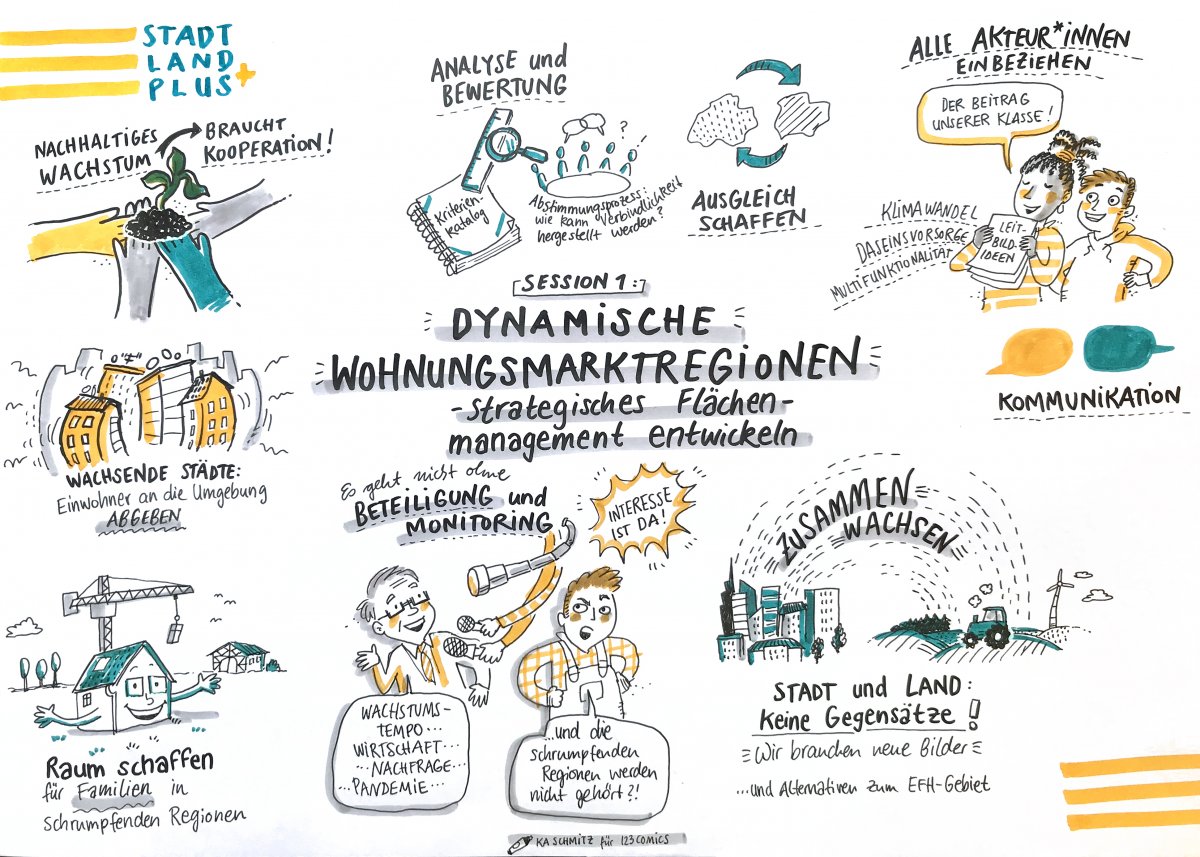 STADT
LAND
PLUS+
NACHHALTIGES
WACHSTUM
BRAUCHT
KOOPERATION!
ANALYSE und
BEWERTUNG
Kriterien-
katalog
?
Abstimmungsprozess:
wie kann Verbindlichkeit
hergestellt werden?
AUSGLEICH
SCHAFFEN
ALLE AKTEUR*INNEN
EINBEZIEHEN
DER BEITRAG
UNSERER KLASSE!
KLIMAWANDEL
DASEINSVORSORGE
MULTIFUNKTIONALITÄT
LEIT-
BILD-
IDEEN
KOMMUNIKATION
SESSION 1:
DYNAMISCHE
WOHNUNGSMARKTREGIONEN
-strategisches Flächen-
management entwickeln
WACHSENDE STÄDTE:
Einwohner an die Umgebung
ABGEBEN
Es geht nicht ohne
BETEILIGUNG und
MONITORING
INTERESSE
IST DA!
WACHSTUMS-
TEMPO...
WIRTSCHAFT...
...NACHFRAGE...
...PANDEMIE...
...und die
schrumpfenden
Regionen werden
nicht gehört?!
ZUSAMMEN
WACHSEN
STADT und LAND:
Keine Gegensätze!
Wir brauchen neue Bilder
...und Alternativen zum EFH-Gebiet
Raum schaffen
für Familien in
schrumpfenden Regionen
KA SCHMITZ für 123COMICS